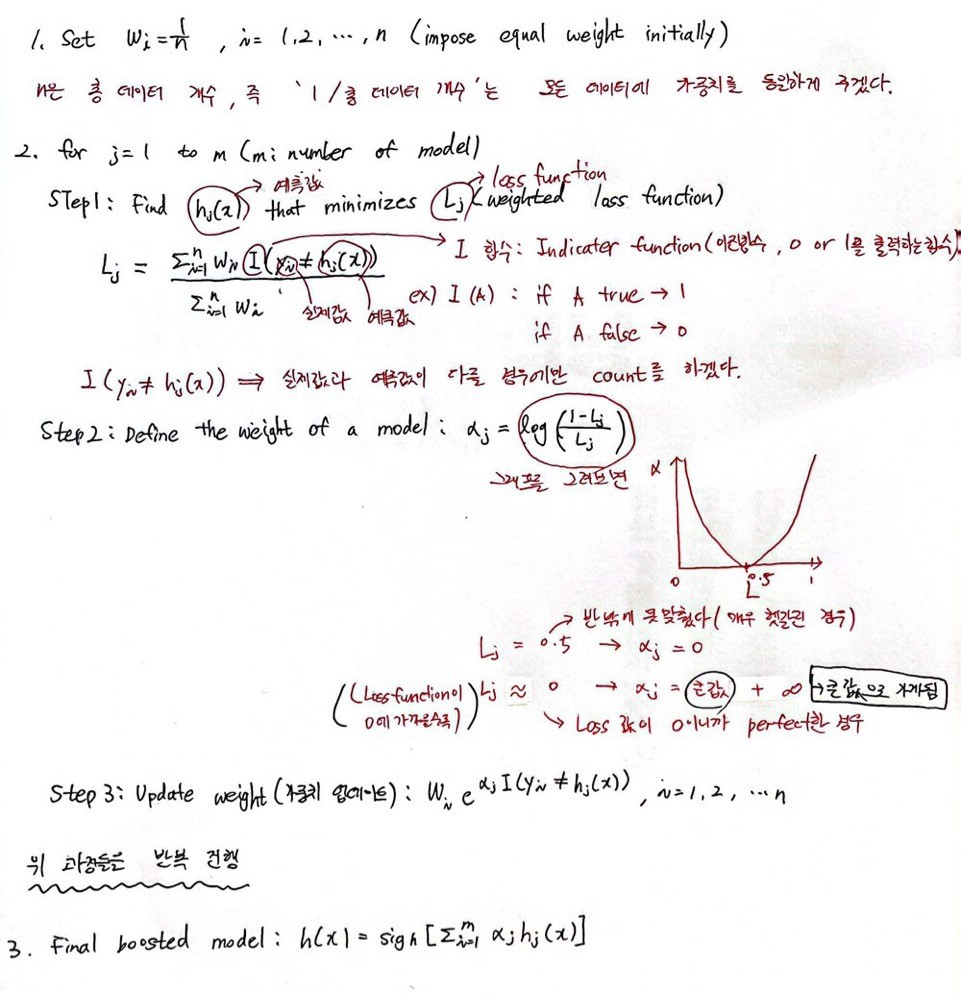 1. Set Wᵢ = 1/n , i = 1, 2, ⋯, n (impose equal weight initially)
n은 총 데이터 개수, 즉 '1/총 데이터 개수'는 모든 데이터에 가중치를 동일하게 주겠다.
2. for j=1 to m (m: number of model)
예측값
loss function
Step1: Find hⱼ(x) that minimizes Lⱼ (weighted loss function)
Lⱼ = Σⁿᵢ₌₁ Wᵢ I(yᵢ ≠ hⱼ(x)) / Σⁿᵢ₌₁ Wᵢ
실제값 예측값
I 함수: Indicater function (이진함수, 0 or 1을 출력하는 함수)
ex) I(A) : if A true → 1
if A false → 0
I(yᵢ ≠ hⱼ(x)) ⇒ 실제값과 예측값이 다를 경우에만 count를 하겠다.
Step2: Define the weight of a model : αⱼ = log((1-Lⱼ)/Lⱼ)
그래프를 그려보면
α
0 0.5 1
L
반밖에 못 맞췄다 (매우 헷갈린 경우)
Lⱼ = 0.5 → αⱼ = 0
((Loss function이 0에 가까울수록)) Lⱼ ≈ 0 → αⱼ = 큰값 + ∞ → 큰 값으로 가게됨
Loss 값이 0이니까 perfect한 경우
Step3: Update weight (가중치 업데이트) : Wᵢ e^(αⱼ I(yᵢ ≠ hⱼ(x))) , i = 1, 2, ⋯ n
위 과정들은 반복 진행
3. Final boosted model : h(x) = sign [Σᵐᵢ₌₁ αⱼ hⱼ(x)]